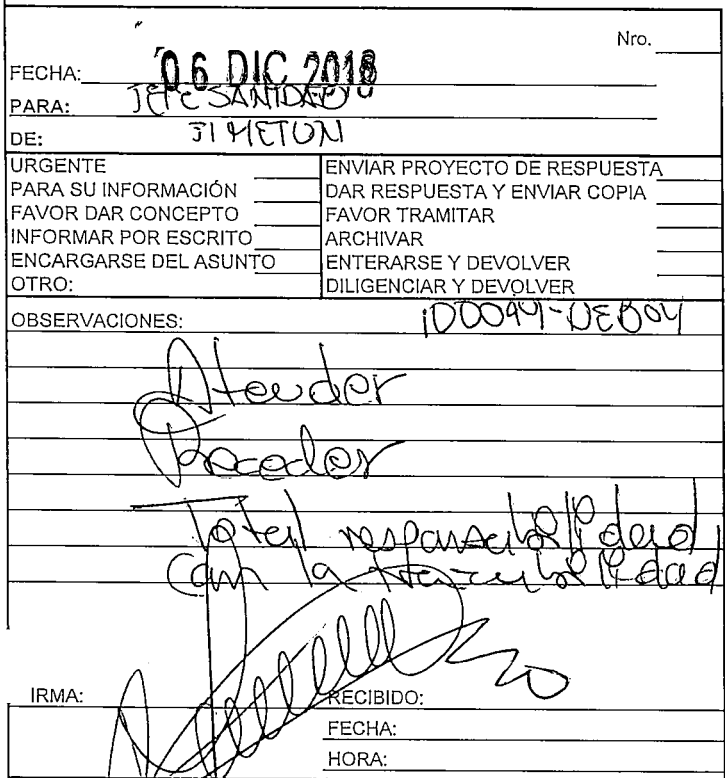 Nro.
FECHA: 06 DIC 2018
PARA: JEFE SANIDAD
DE: JIMETUN
URGENTE
PARA SU INFORMACIÓN
FAVOR DAR CONCEPTO
INFORMAR POR ESCRITO
ENCARGARSE DEL ASUNTO
OTRO:
ENVIAR PROYECTO DE RESPUESTA
DAR RESPUESTA Y ENVIAR COPIA
FAVOR TRAMITAR
ARCHIVAR
ENTERARSE Y DEVOLVER
DILIGENCIAR Y DEVOLVER
OBSERVACIONES:
Atender
Proceder
Total responsabilidad
con la trazabilidad
IRMA:
RECIBIDO:
FECHA:
HORA: